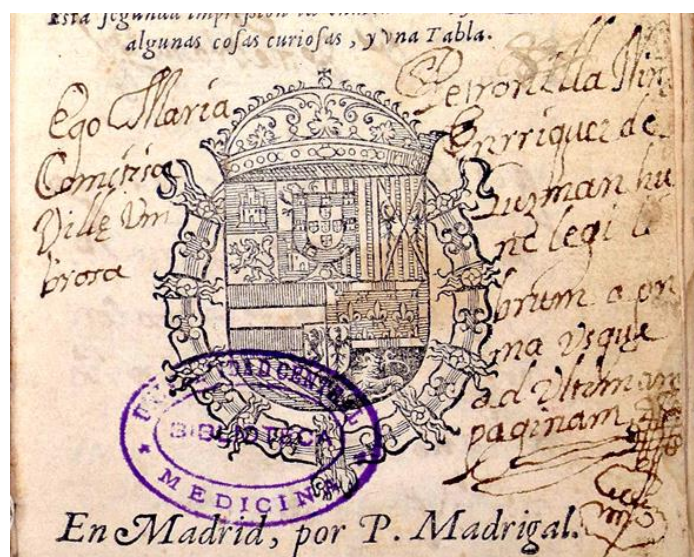 Esta segunda impresion
algunas cosas curiosas, y vna Tabla.
Ego Maria
Comitisa
Villę Vm
brosa
Petronilla Nin
Enrriquez de
Guzman hu
nc legi li
brum a pri
ma vsque
ad vltimam
paginam
UNIVERSIDAD CENTRAL
BIBLIOTECA
MEDICINA
En Madrid, por P. Madrigal.